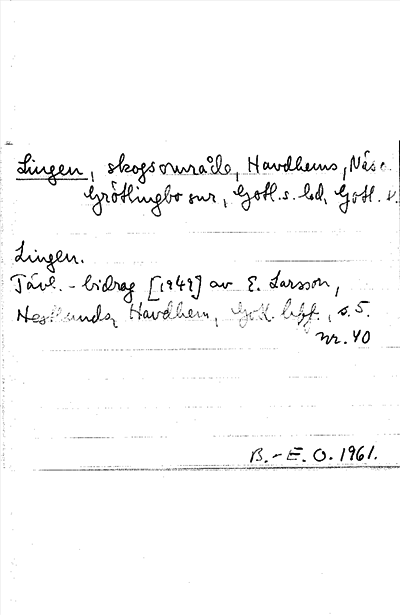 Lingen, skogsområde, Havdhems, Näs o.
Grötlingbo snr, Gotl. s. hd, Gotl.
Lingen.
Tävl.-bidrag [1949] av E. Larsson,
Havdhem, Gotl. s. 5.
nr. 40
B.-E. O. 1961.